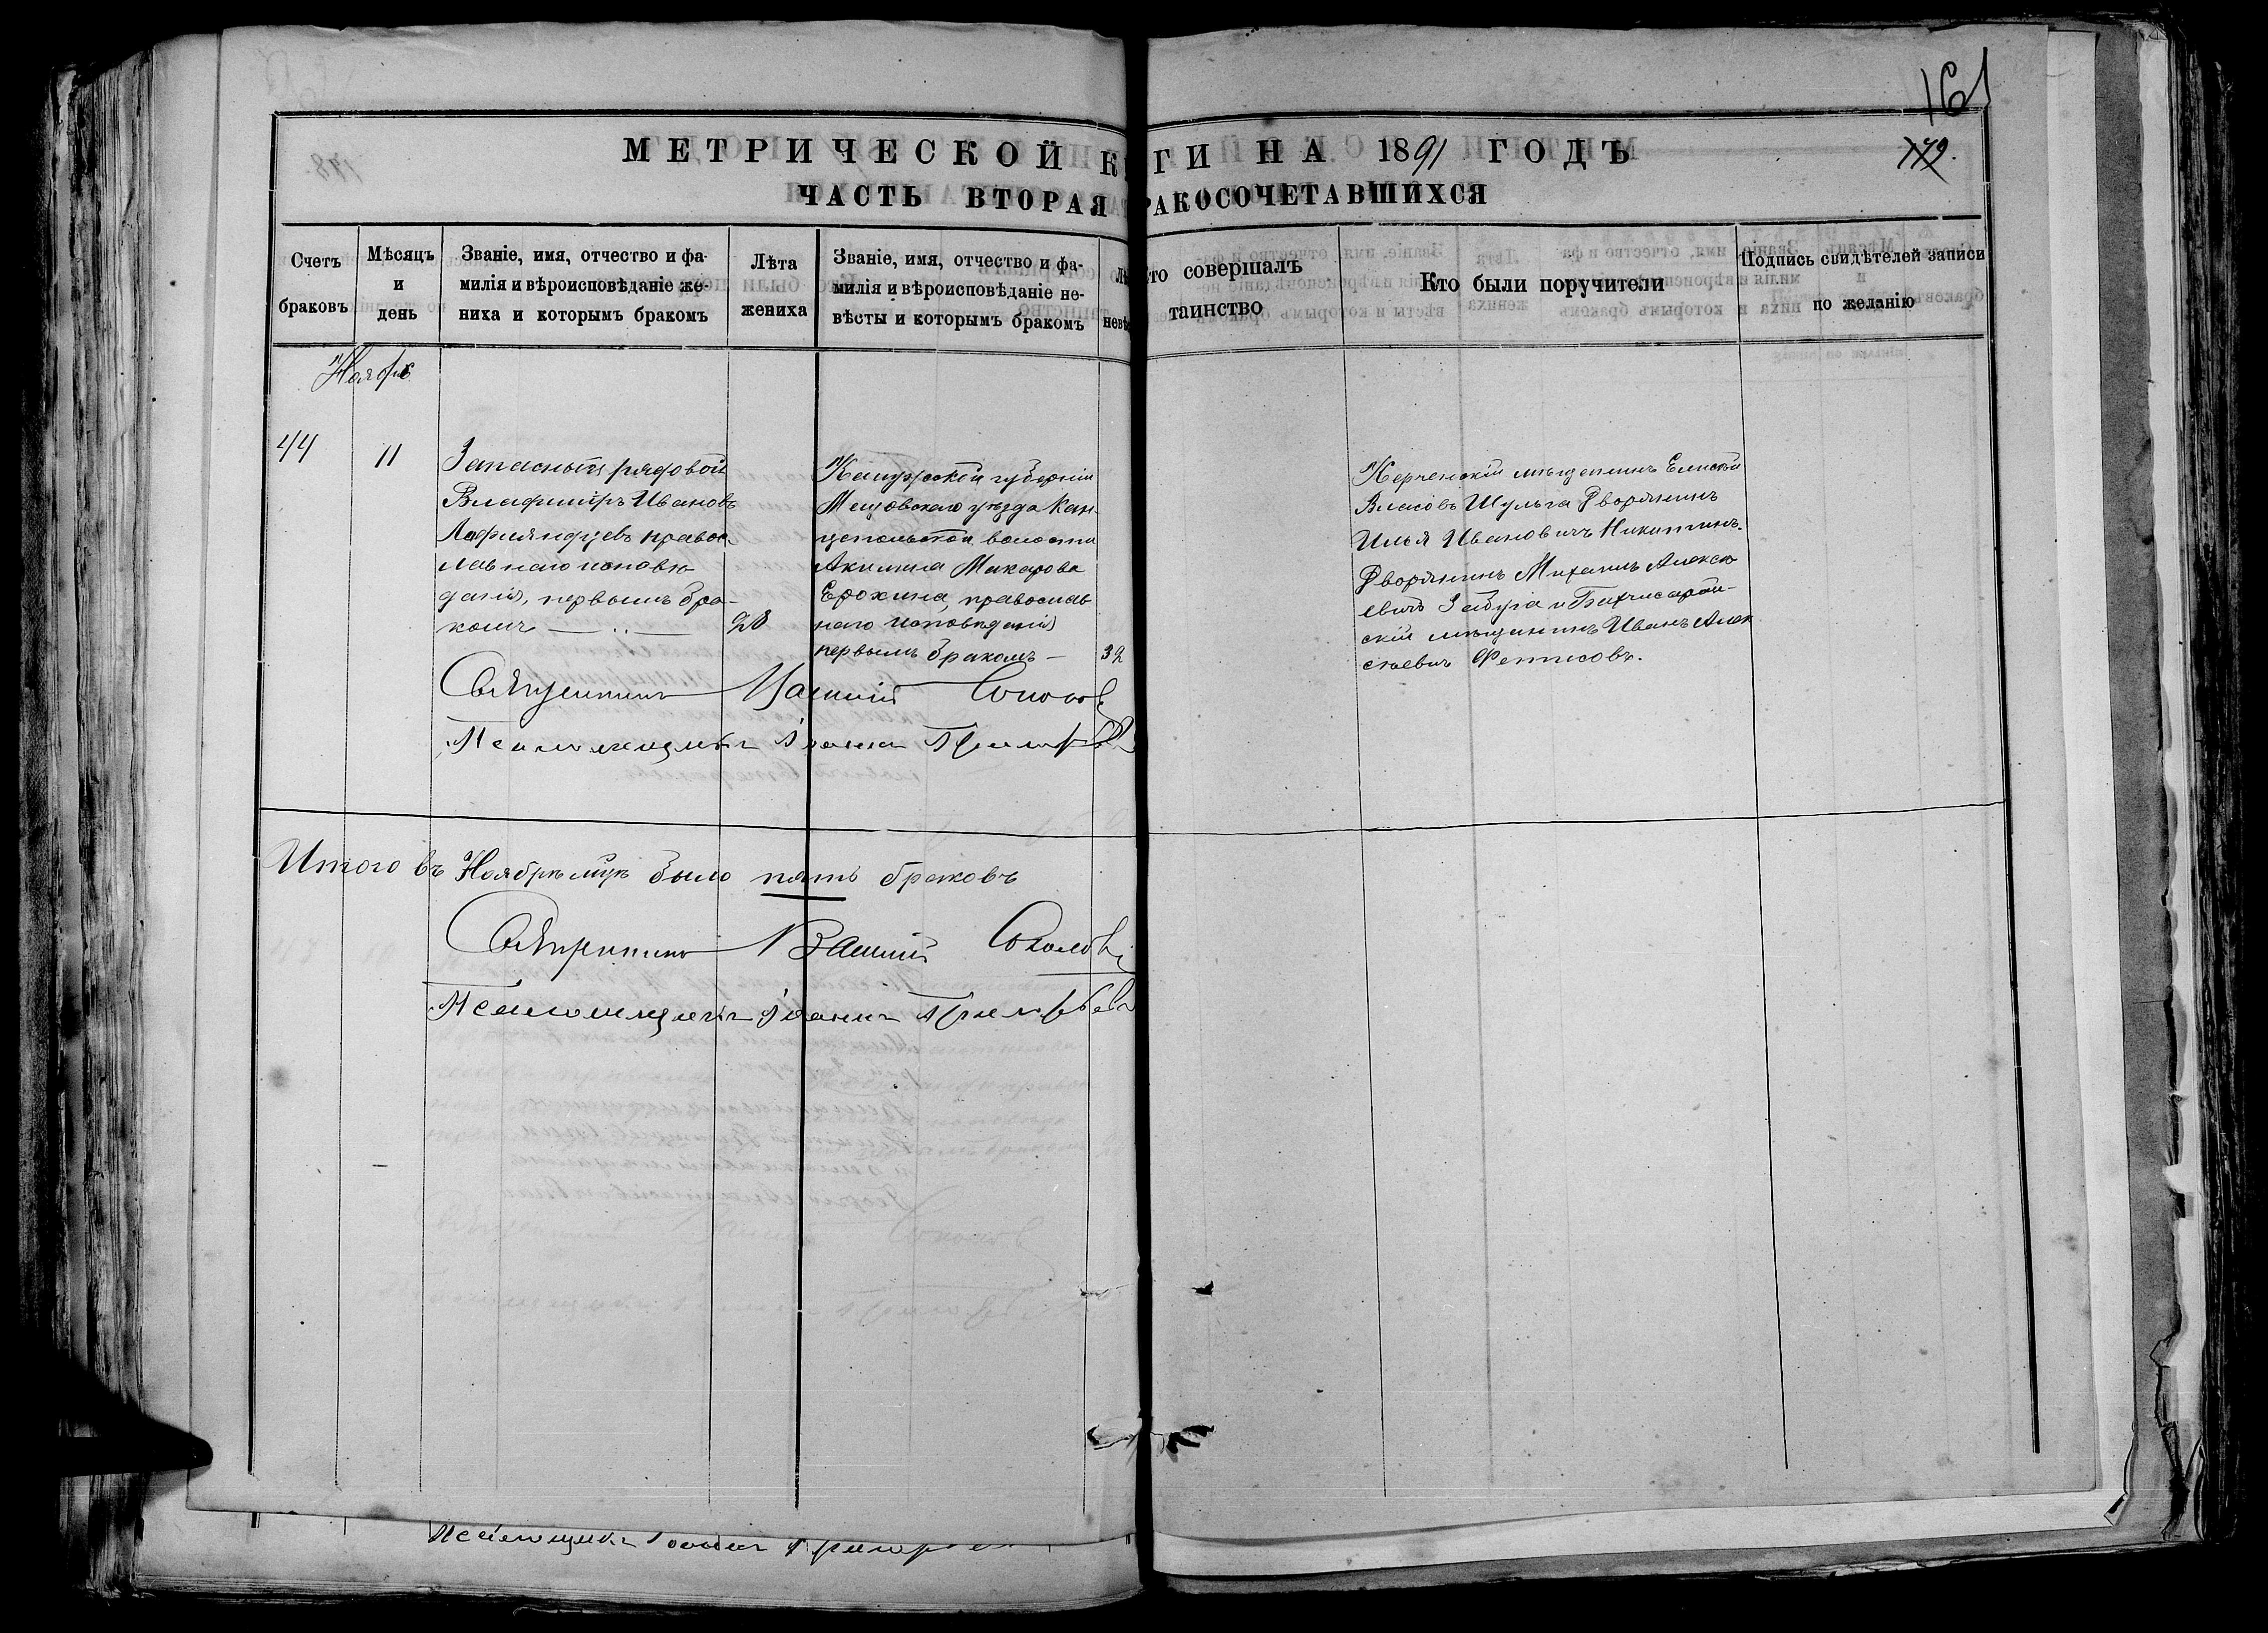 161
МЕТРИЧЕСКОЙ К ГИ НА 1891 ГОДЪ
179.
ЧАСТЬ ВТОРАЯ РАКОСОЧЕТАВШИХСЯ
Счетъ браковъ
Мѣсяцъ и день
Званіе, имя, отчество и фа-
милія и вѣроисповѣданіе же-
ниха и которымъ бракомъ
Лѣта
жениха
Званіе, имя, отчество и фа-
милія и вѣроисповѣданіе не-
вѣсты и которымъ бракомъ
то совершалъ
таинство
Кто были поручители
Подпись свидѣтелей записи
по желанію
Ноябрь
44
11
Запасный рядовой
Владиміръ Ивановъ
правос-
лавнаго исповѣ-
данія, первымъ бра-
комъ
28
Калужской губерніи
Мещовскаго уѣзда
волости
Акилина Макарова
Ерохина, православ
наго исповѣданія
первымъ бракомъ —
32
Керченскій мѣщанинъ Елисей
Власовъ Шульга Дворянинъ
Илья Ивановичъ Никитинъ.
Дворянинъ Михаилъ Алексѣ
евичъ и Бахчисарай-
скій мѣщанинъ Иванъ Алек
сѣевичъ Фетисовъ.
Священникъ Василій Соколовъ
Псаломщикъ Іоаннъ
Итого въ Ноябрѣ мцѣ было пять браковъ
Священникъ Василій Соколовъ
Псаломщикъ Іоаннъ
Псаломщикъ Іоаннъ